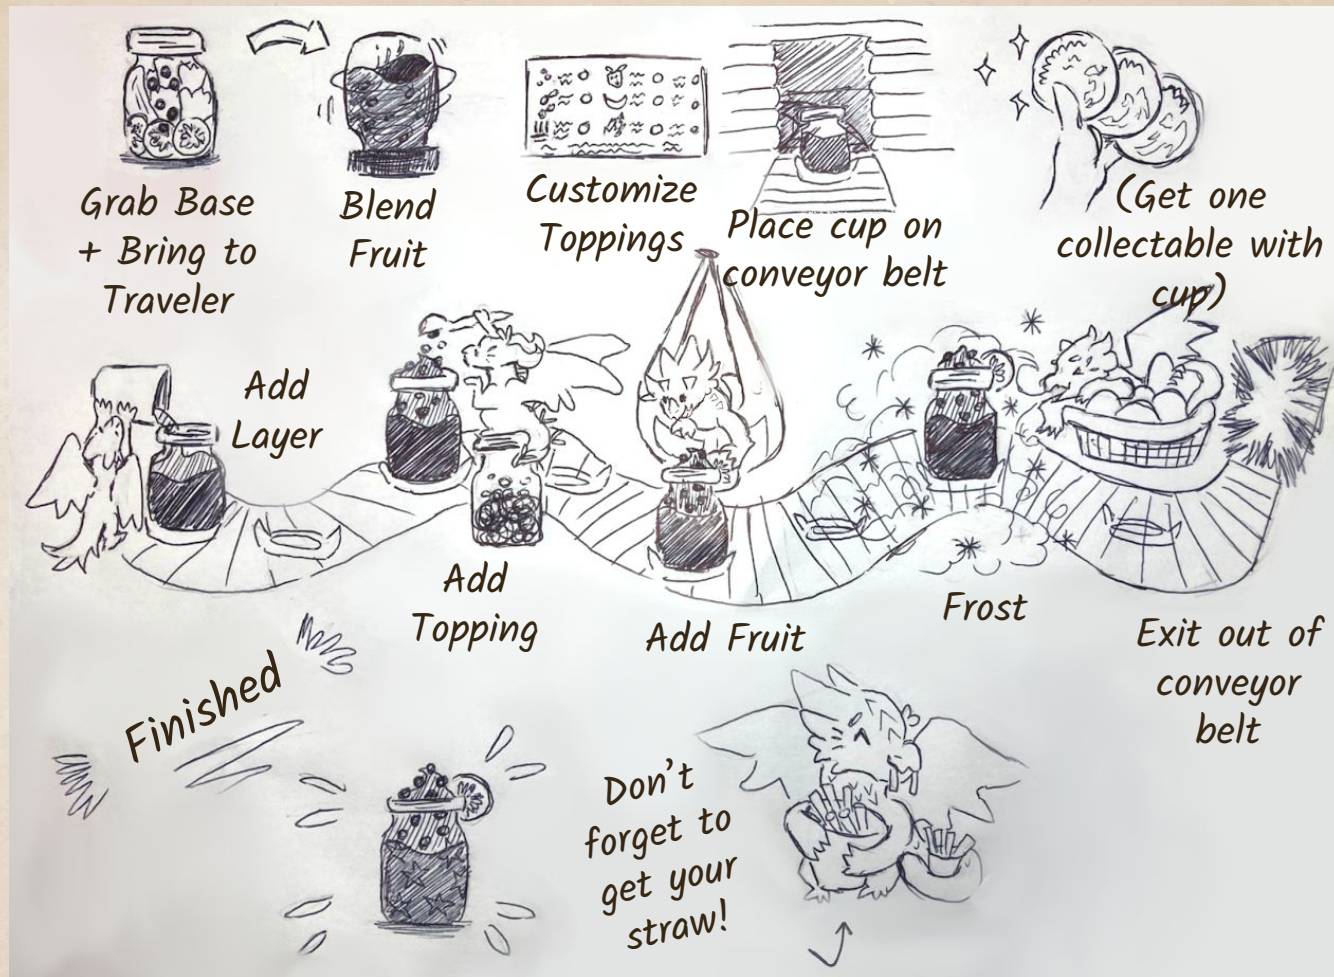 Grab Base
+ Bring to
Traveler
Blend
Fruit
Customize
Toppings
Place cup on
conveyor belt
(Get one
collectable with
cup)
Add
Layer
Add
Topping
Add Fruit
Frost
Exit out of
conveyor
belt
Finished
Don't
forget to
get your
straw!